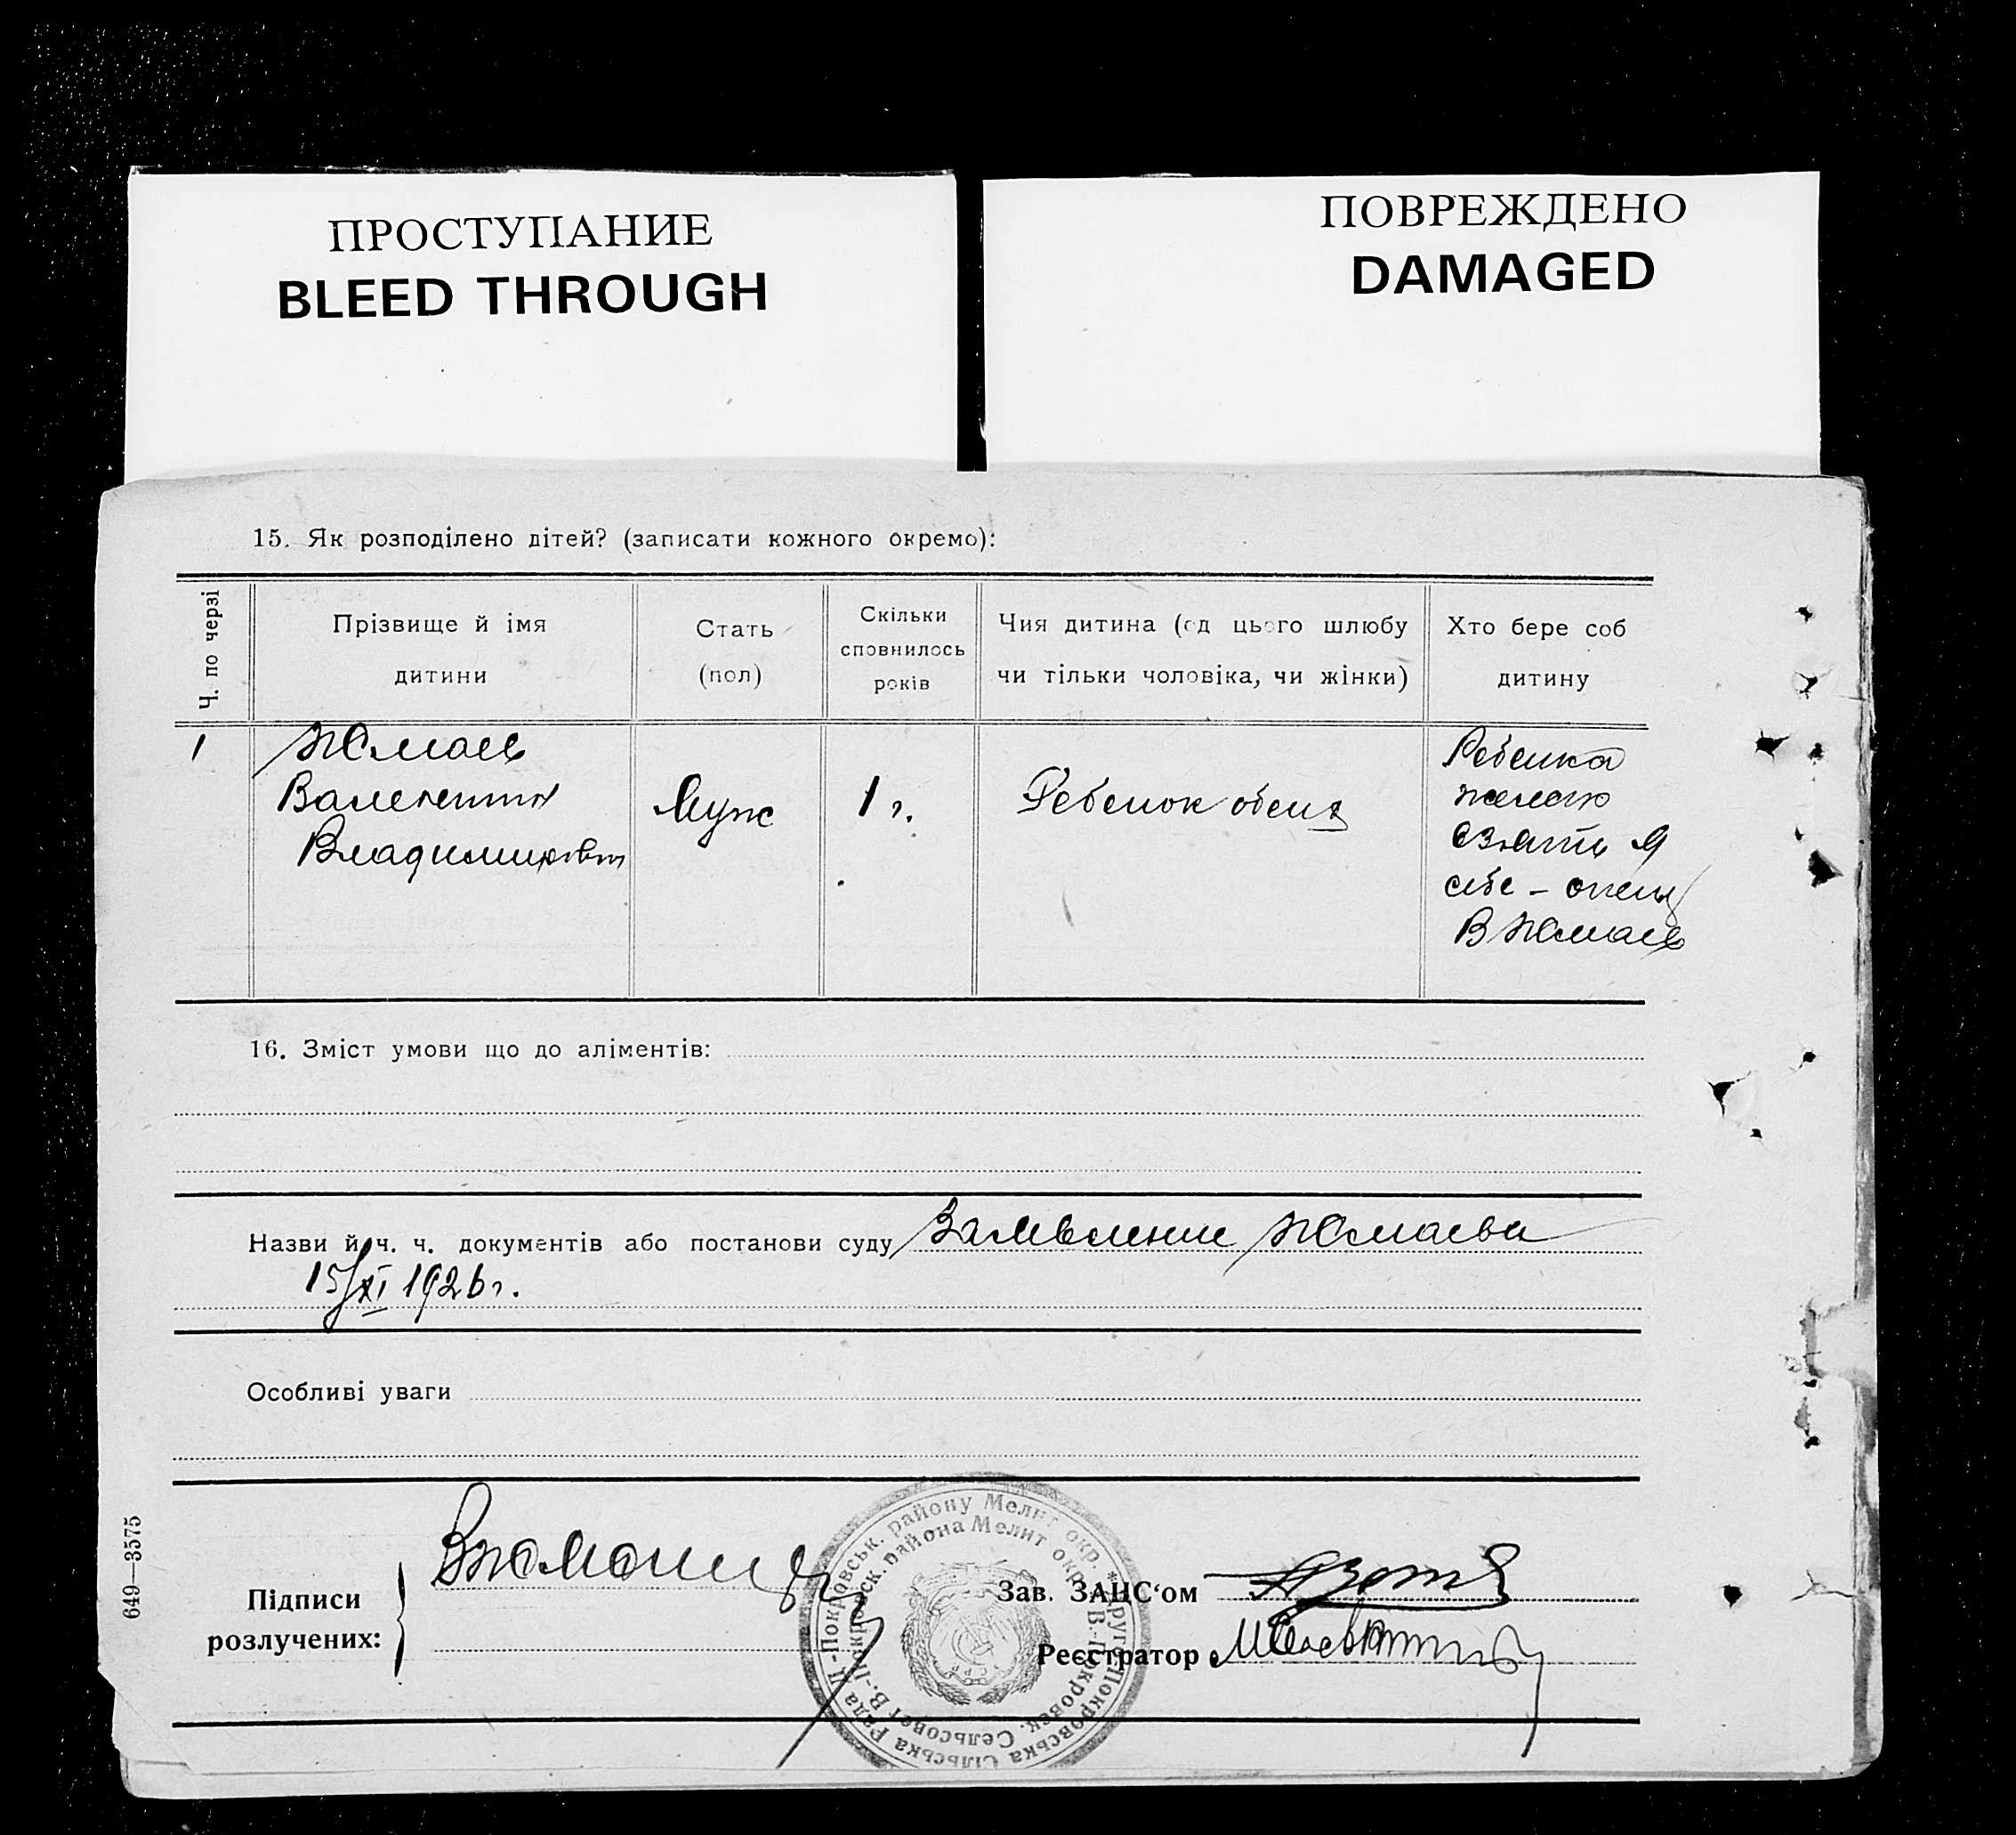 ПРОСТУПАНИЕ
BLEED THROUGH
ПОВРЕЖДЕНО
DAMAGED
15. Як розподілено дітей? (записати кожного окремо):
Ч. по черзі
Прізвище й імя
дитини
Стать
(пол)
Скільки
сповнилось
років
Чия дитина (од цього шлюбу
чи тільки чоловіка, чи жінки)
Хто бере соб
дитину
1
Юмаев
Валентин
Владимирович
Муж
1 г.
Ребенок
Ребенка
желаю
взять я
себе -
В Юмаев
16. Зміст умови що до аліментів:
Назви й ч. ч. документів або постанови суду Заявление Юмаева
15/XI 1926 г.
Особливі уваги
649—3575
Підписи
розлучених:
Зав. ЗАЦС‘ом
Реєстратор
Покровська Сільська Рада В.-Покровськ. району Мелит окр. * Друго
В.-Покровск. Сельсовет В.-Покровск. района Мелит окр.